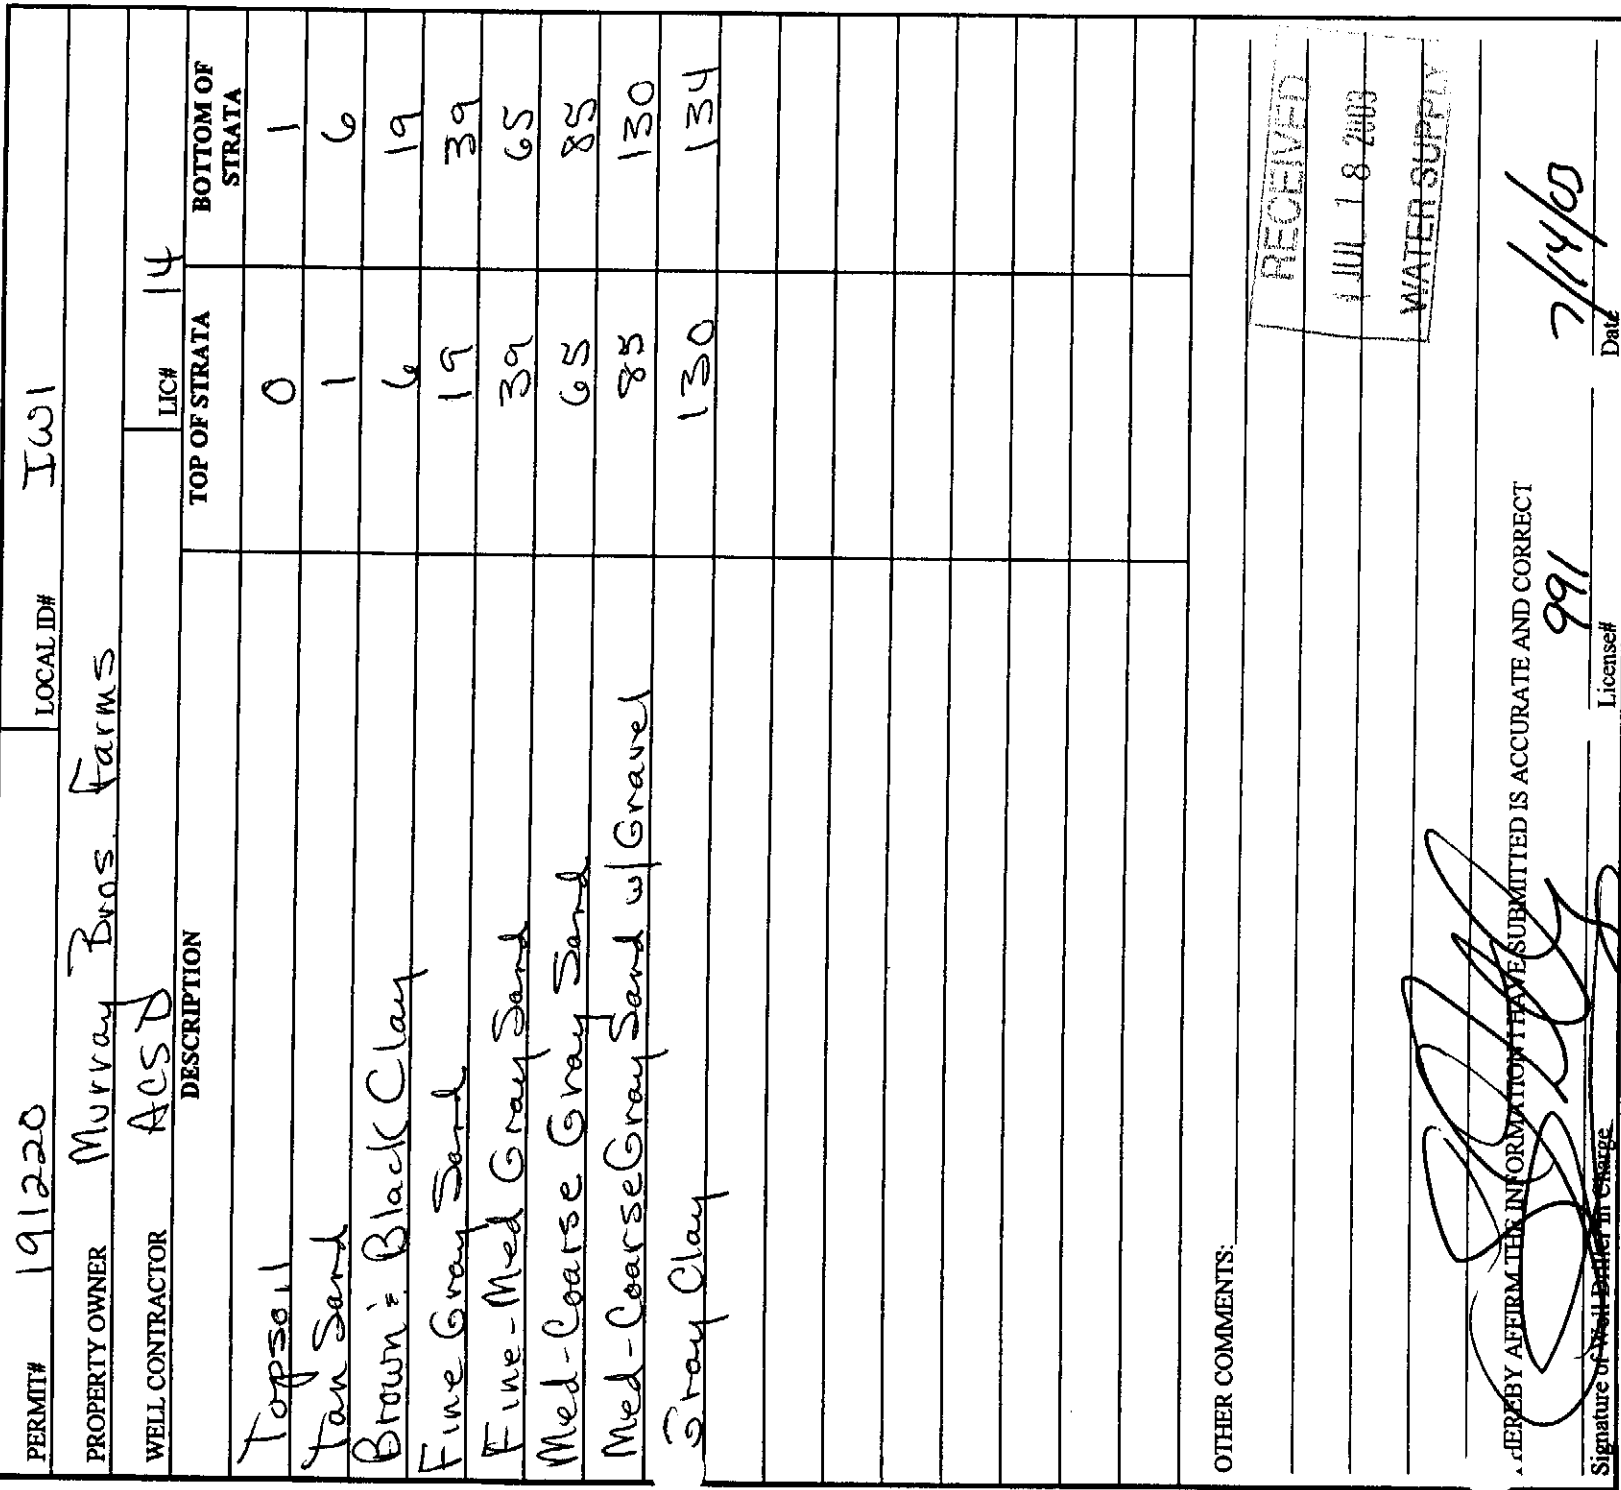 PERMIT# 191220 LOCAL ID# IW1
PROPERTY OWNER Murray Bros. Farms
WELL CONTRACTOR ACSD LIC# 14
DESCRIPTION TOP OF STRATA BOTTOM OF STRATA
Topsoil 0 1
Tan Sand 1 6
Brown & Black Clay 6 19
Fine Gray Sand 19 39
Fine-Med Gray Sand 39 65
Med-Coarse Gray Sand 65 85
Med-Coarse Gray Sand w/ Gravel 85 130
Gray Clay 130 134
OTHER COMMENTS:
RECEIVED
JUL 18 2003
WATER SUPPLY
HEREBY AFFIRM THE INFORMATION I HAVE SUBMITTED IS ACCURATE AND CORRECT
991 7/14/03
Signature of Well Driller in Charge License# Date